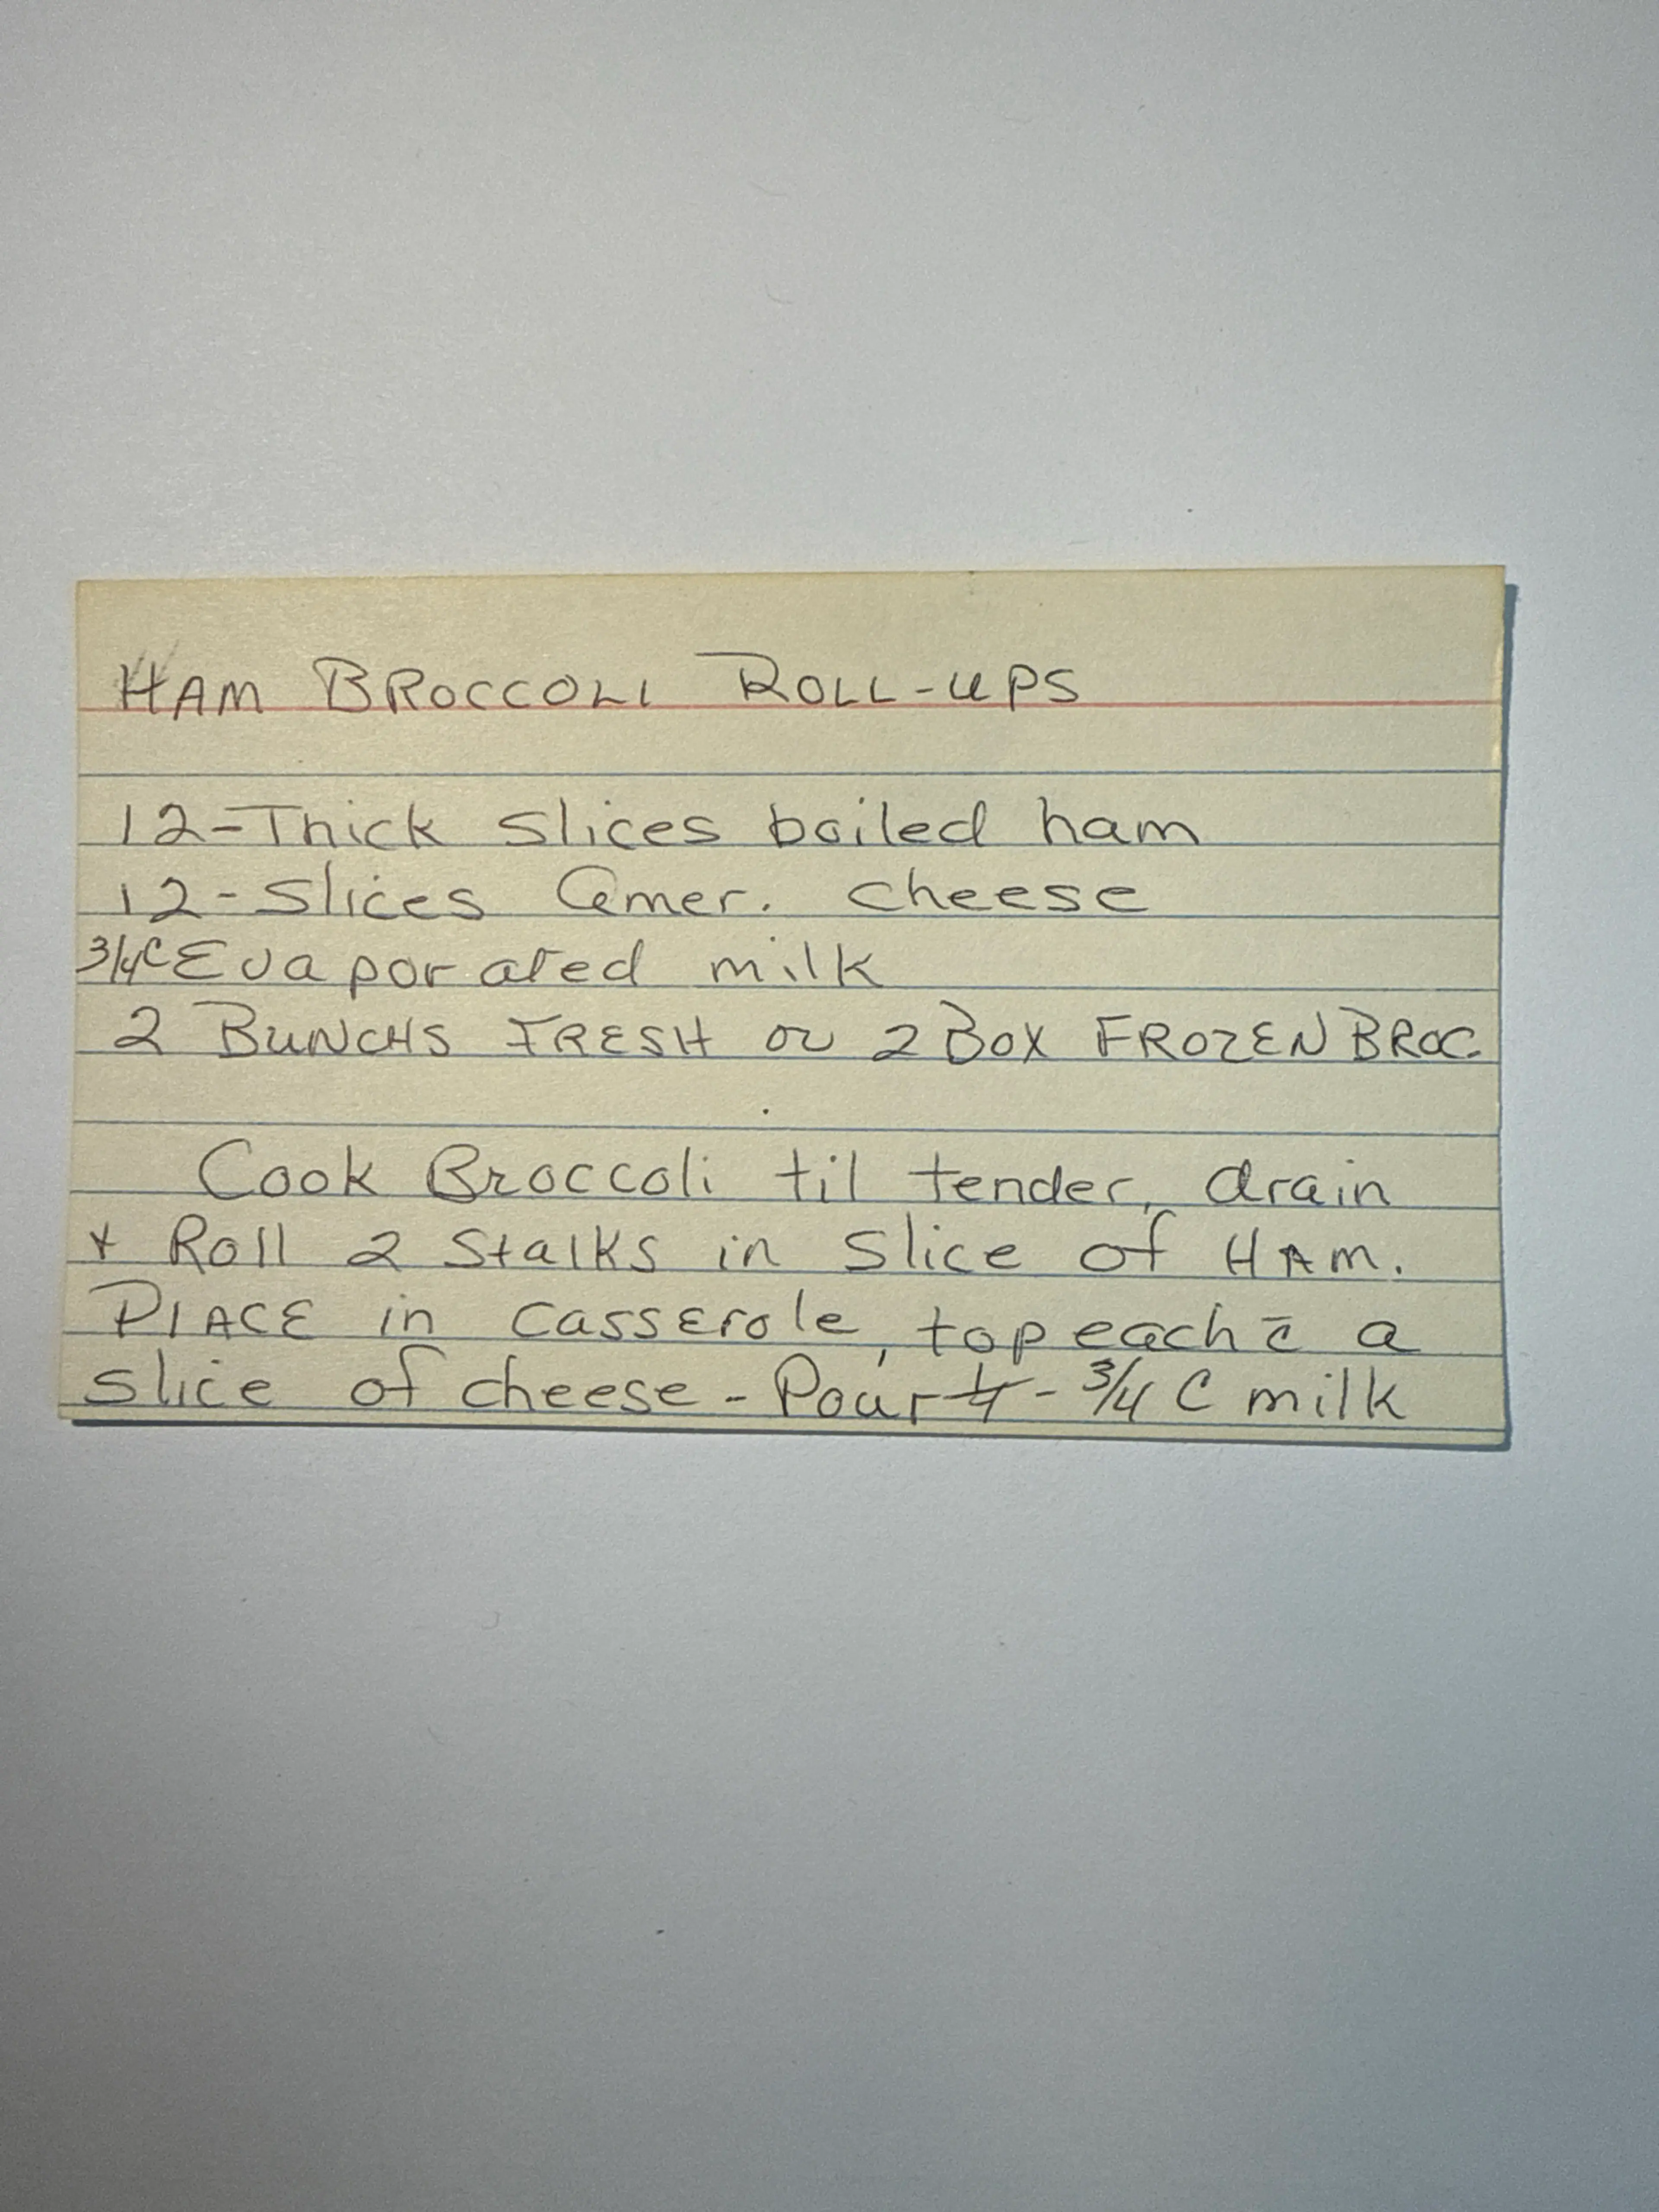 HAM BROCCOLI ROLL-UPS
12-Thick slices boiled ham
12-slices Amer. cheese
3/4C Evaporated milk
2 BUNCHS FRESH or 2 BOX FROZEN BROC.
Cook Broccoli til tender, drain
+ Roll 2 Stalks in slice of HAM.
PlACE in casserole, top each c̄ a
slice of cheese - Pour - 3/4 C milk